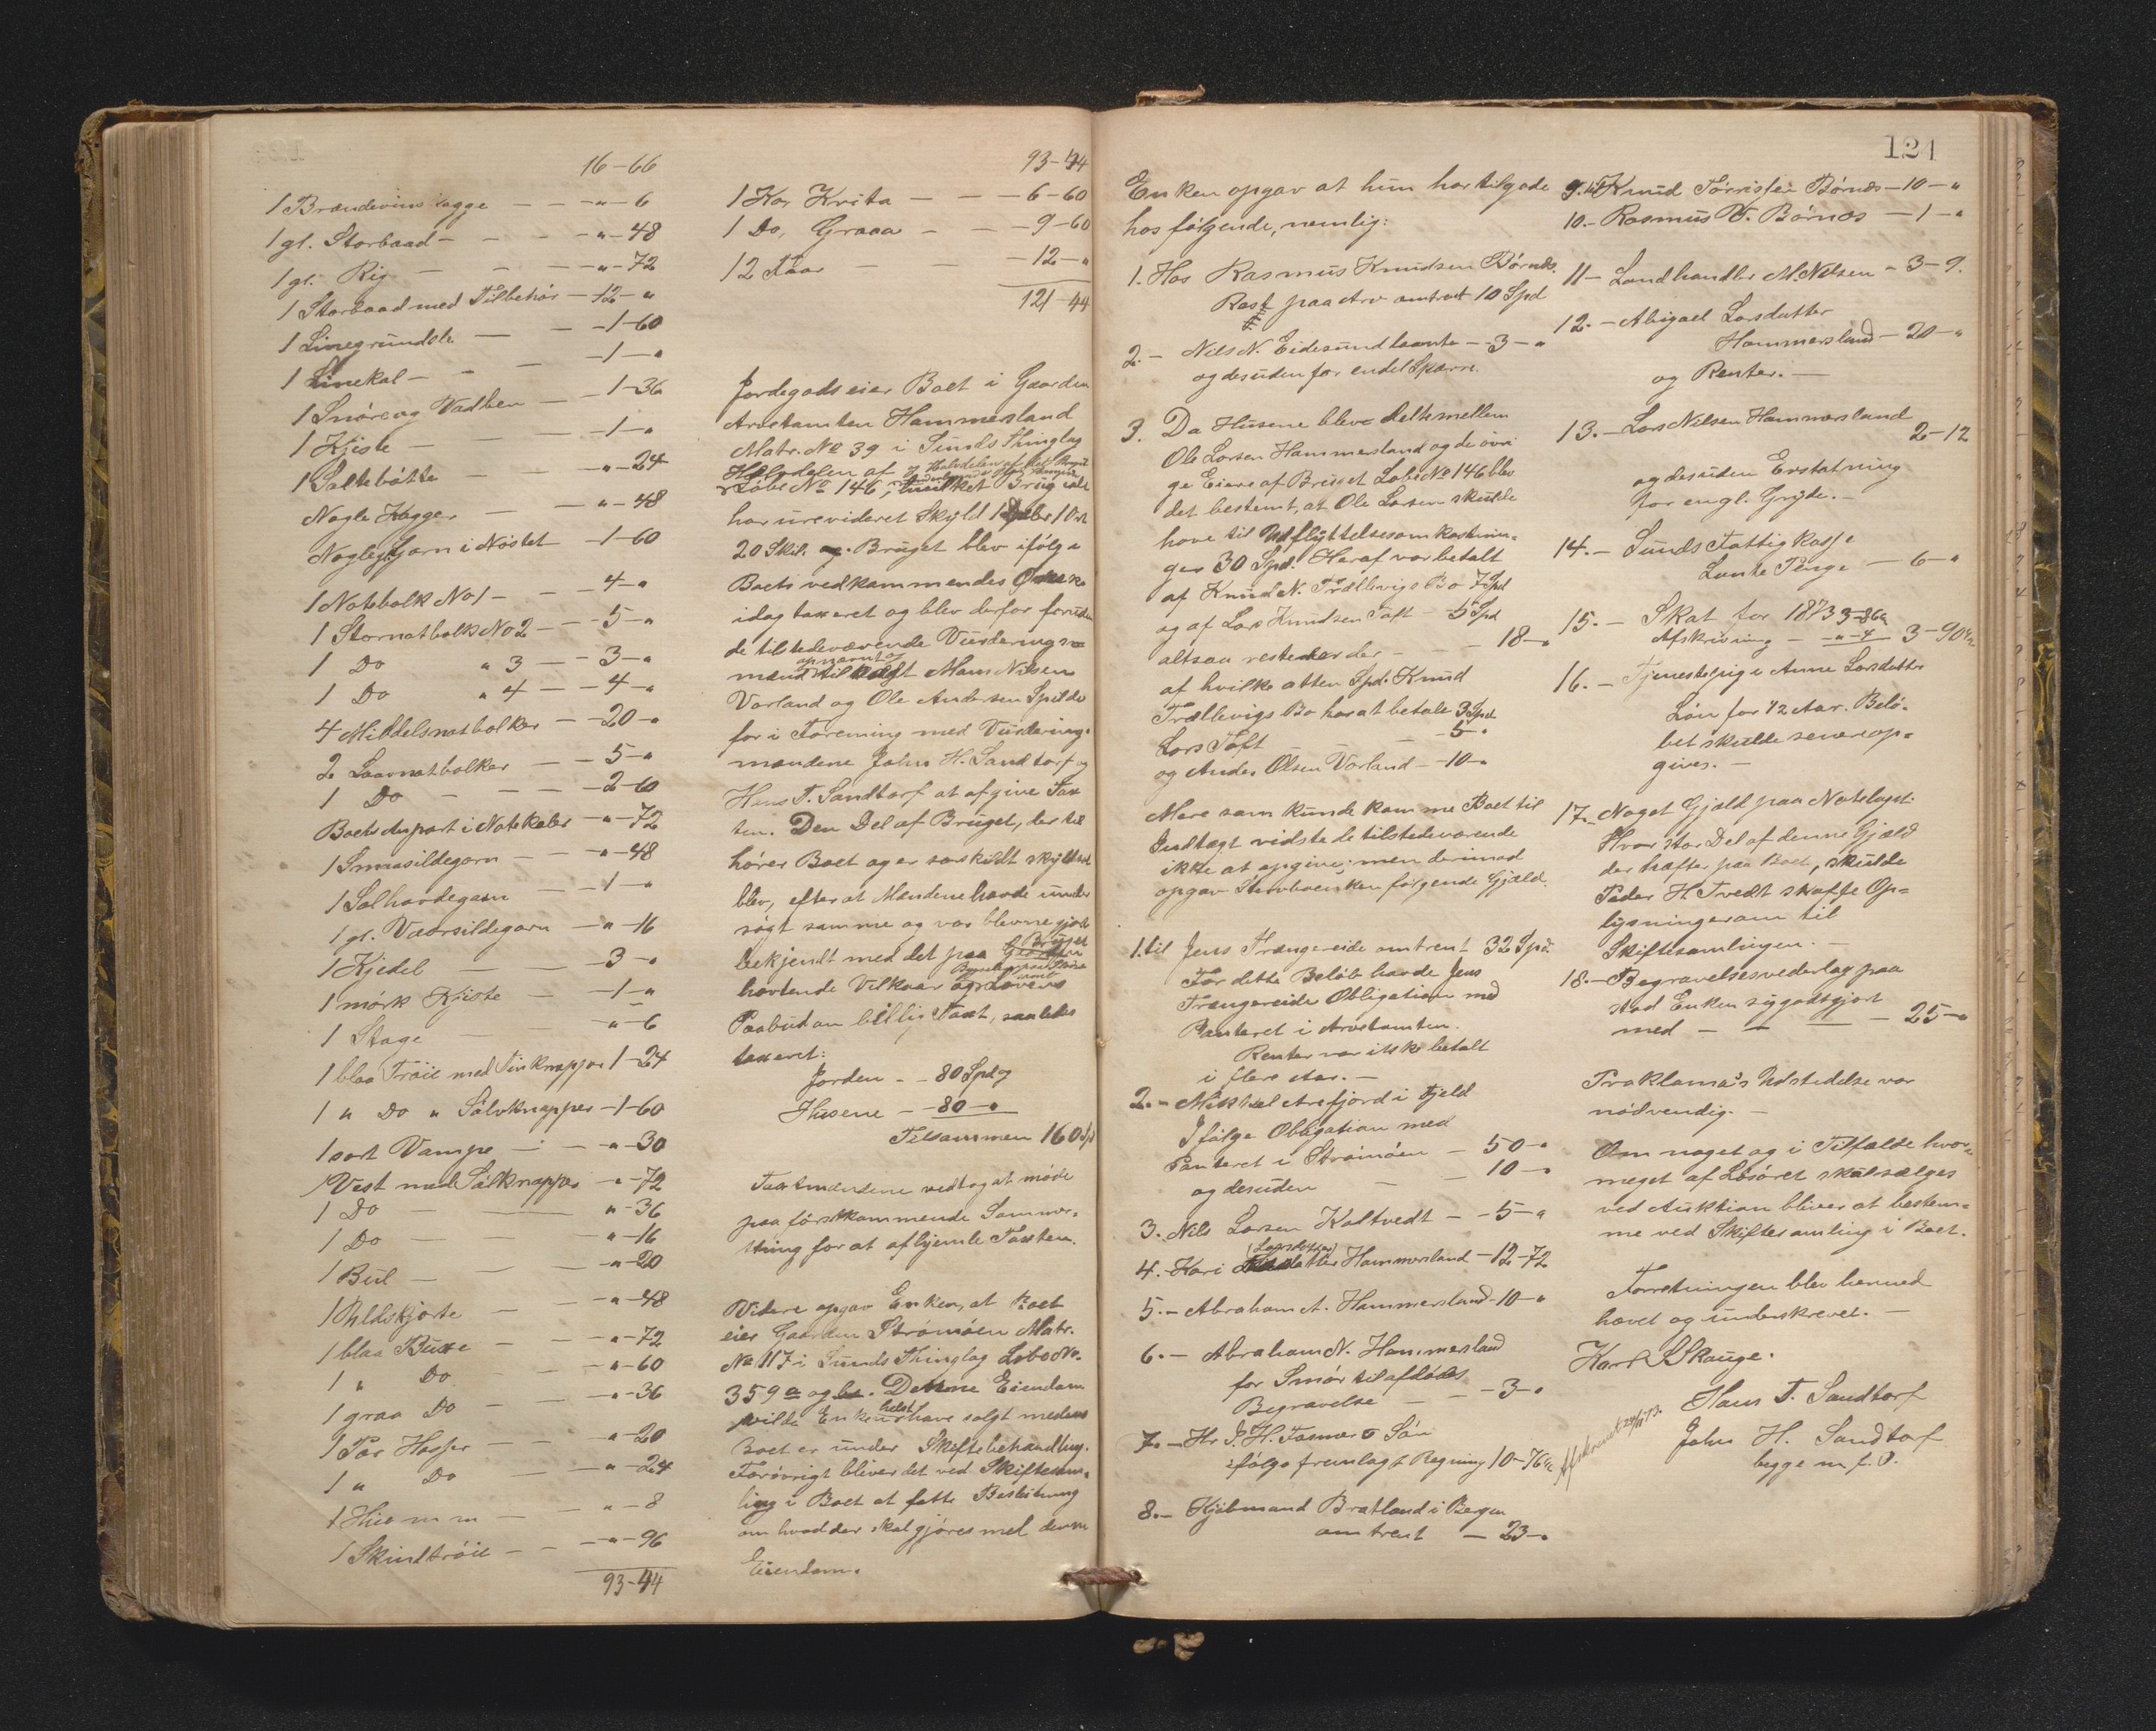 16-66
1 Brændevins Kagge - - „-6
1 gl. Storbaad - - - „-48
1 gl. Rig - - - „-72
1 Storbaad med Tilbehør - 12-„
1 Linegrundsle - - 1-60
1 Linekal - - - 1-„
1 Snøre og Vadben - 1-36
1 Kjiste - - - 1-„
1 Saltebøtte - - „-24
Nogle Kagger - - „-48
Nogle Garn i Nøstet - 1-60
1 Notebolk No 1 - - 4-„
1 Stornotbolk No 2 - - 5-„
1 Do „ 3 - - 3-„
1 Do „ 4 - - 4-„
4 Middelsnotbolker - 20-„
2 Laavnotbolker - - 5-„
1 Do - - - 2-60
Boets Anpart i Notekabler - „-72
1 Smaasildegarn - - „-48
1 Salhovdegarn - 1-„
1 gl. Vaarsildegarn - „-16
1 Kjedel - - 3-„
1 mørk Kjiste - - 1-„
1 Stage - - „-6
1 blaa Trøie med Tinknapper 1-24
1 „ Do „ Sølvknapper - 1-60
1 sort Vampe - - „-30
1 Vest med Sølknapper - „-72
1 Do - - „-36
1 Do - - „-16
1 Bul - - - „-20
1 Uldskjorte - - „-48
1 blaa Buxe - - „-72
1 „ Do - - „-60
1 graa Do - - „-36
1 Par Hoser - - „-20
1 „ Do - - „-24
1 Hue m m - - „-8
1 Skindtrøie - - „-96
93-44
93-44
1 Kor Kvita - - 6-60
1 Do, Graaa - - 9-60
12 Faar - - 12-„
121-44
Jordegods eier Boet i Gaarden
Arestamten Hammersland
Matr. No 39 i Sunds Thinglag
Halvdelen af
Løbe No 146, hvilket Brug ialt
har urevideret Skyld 1 Daler 1 Ort
20 Skil. Bruget blev ifølge
Boets vedkommendes Ønske
idag taxeret og blev derfor foruden
de tilstedeværende Vurderings-
opnævnt og
mænd tilkaldt Mons Nilsen
Vorland og Ole Andersen Spilde
for i Forening med Vurderings-
mændene John H. Sandtorf og
Hans T. Sandtorf at afgive Tax
ten. Den Del af Bruget, der til
hører Boet og er særskildt skyldsat
blev, efter at Mændene havde under
søgt samme og var blevne gjort
Bruget
bekjendt med det paa Gaarden
hæftende Vilkaar og Lovens
Paabud om billig Taxt, saaledes
taxeret:
Jorden - - 80 Spd.
Husene - - 80 -„
Tilsammen 160 Spd
Taxtmændene vedtog at møde
paa førstkommende Sommer-
thing for at afhjemle Taxten.
Videre opgav Enken, at Boet
eier Gaarden Strømøen Matr.
No 117 i Sunds Thinglag Løbe No.
359 a og b. Denne Eiendom
helst
vilde Enken have solgt medens
Boet er under Skiftebehandling.
Forøvrigt bliver det ved Skiftesam-
ling i Boet at fatte Beslutning
om hvad der skal gjøres med denne
Eiendom.
121
Enken opgav at hun har tilgode
hos følgende, nemlig:
1. Hos Rasmus Knudsen Børnæs.
Rest paa Arv omtrent 10 Spd
2. - Nils N. Eidesund laante - 3-„
og desuden for endel Sparre.
3. Da Husene blev delte mellem
Ole Larsen Hammersland og de øvri
ge Eiere af Bruget Løbe No 146 blev
det bestemt, at Ole Larsen skulde
have til Udflyttelsesomkostnin-
ger 30 Spd. Heraf var betalt
af Knud N. Trællevigs Bo 7 Spd
og af Lars Knudsen Toft - 5 Spd
altsaa resterer der - - - 18-„
af hvilke atten Spd. Knud
Trællevigs Bo har at betale 3 Spd
Lars Toft - 5-„
og Anders Olsen Vorland - 10-„
Mere som kunde komme Boet til
Indtægt vidste de tilstedeværende
ikke at opgive; men derimod
opgav Sterboenken følgende Gjæld.
1. til Jens Trængereide omtrent 32 Spd.
For dette Beløb havde Jens
Trængereide Obligation med
Panteret i Arestamten.
Renter var ikke betalt
i flere Aar. -
2. - Mikkel Arefjord i Fjeld
Ifølge Obligation med
Panteret i Strømøen - 50-„
og desuden - - 10-„
3. Nils Larsen Kaltvedt - - 5-„
(Larsdatter)
4. - Kari Hammersland - 12-72
5. - Abraham A. Hammersland - 10-„
6. - Abraham N. Hammersland
for Smør til afdødes
Begravelse - - 3-„
7. - Hr J. H. Fasmer & Søn
ifølge fremlagt Regning 10-76
8. - Kjøbmand Bratland i Bergen
omtrent - 23-„
9. til Knud Torrisen Børnæs - 10-„
10. - Rasmus T. Børnæs - 1-„
11 - Landhandler M. Nilsen - 3-9.
12. - Abigael Larsdatter
Hammersland - 20-„
og Renter. -
13. - Lars Nilsen Hammersland
2-12
og desuden Erstatning
for engl. Gryde. -
14. - Sunds Fattigkasse
Laante Penge - 6-„
15. - Skat for 1873 3-86
Afskrivning - „-4 3-90
16. - Tjenestepige Anne Larsdatter
Løn for 1/2 Aar. Belø-
bet skulde senere op-
gives. -
17. - Noget Gjæld paa Notelaget.
Hvor stor Del af denne Gjæld
der hæfter paa Boet, skulde
Peder H. Tvedt skaffe Op-
lysninger om til
Skiftesamlingen. -
18. - Begravelsesvederlag paa
stod Enken sig godtgjort
med - - - 25-„
Proklama's Udstedelse var
nødvendig. -
Om noget og i Tilfælde hvor-
meget af Løsøret skal sælges
ved Auktion bliver at bestem-
me ved Skiftesamling i Boet.
Forretningen blev hermed
hævet og underskrevet. -
Karl S Skauge.
Hans T. Sandtorf
John H. Sandtorf
begge m. f. P.